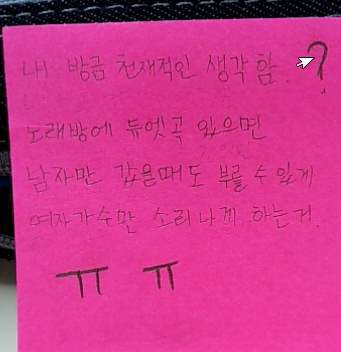 내 방금 천재적인 생각함. ?
노래방에 듀엣곡 있으면
남자만 갔을때도 부를 수 있게
여자가수만 소리나게 하는거.
ㅠ ㅠ